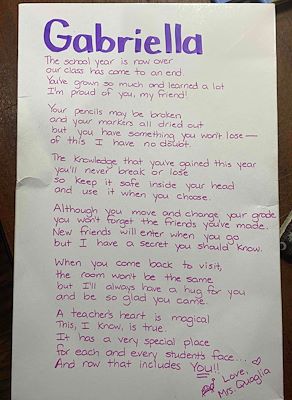 Gabriella
The school year is now over
our class has come to an end.
You've grown so much and learned a lot
I'm proud of you, my friend!
Your pencils may be broken
and your markers all dried out
but you have something you won't lose—
of this I have no doubt.
The knowledge that you've gained this year
you'll never break or lose
so keep it safe inside your head
and use it when you choose.
Although you move and change your grade
you won't forget the friends you've made.
New friends will enter when you go
but I have a secret you should know.
When you come back to visit,
the room won't be the same
but I'll always have a hug for you
and be so glad you came.
A teacher's heart is magical
This, I know, is true.
It has a very special place
for each and every student's face...
And now that includes YOU!!
Love,
Mrs. Quaglia